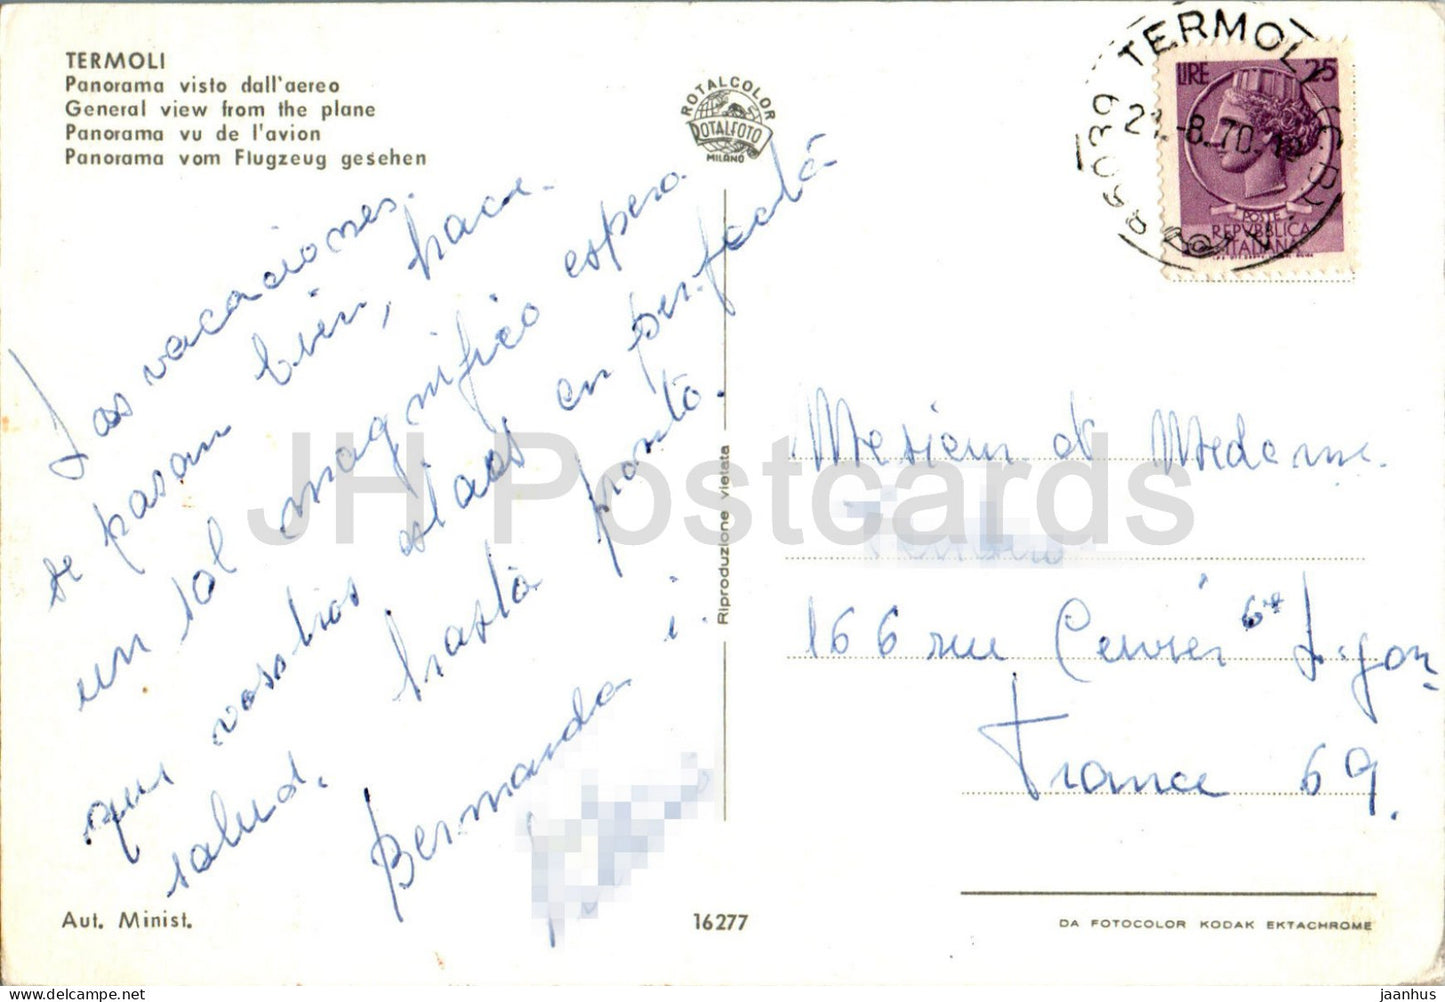 TERMOLI
Panorama visto dall'aereo
General view from the plane
Panorama vu de l'avion
Panorama vom Flugzeug gesehen
ROTALCOLOR
ROTALFOTO
MILANO
86039 TERMOLI
21.-8.70.-19
LIRE 25
POSTE
REPVBBLICA
ITALIANA
Las vacaciones.
se pasan bien, hace.
un sol magnifico espero
que vosotros estads en perfectà
salud. hastà pontò.
Bernanda
i.
Riproduzione vietata
Mesieur et Medame.
166 rue Cuvier 6e Lyon
France 69.
Aut. Minist.
16277
DA FOTOCOLOR KODAK EKTACHROME
JH Postcards
jaanhus @ www.delcampe.net